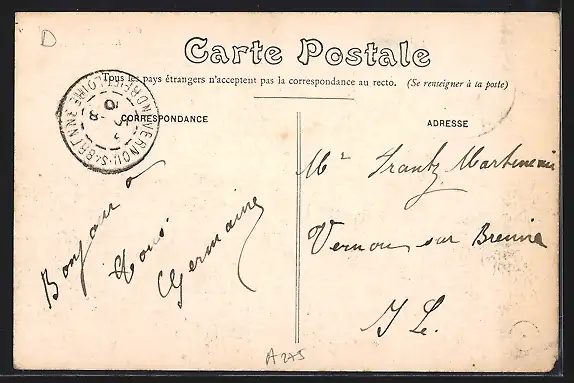 D
Carte Postale
Tous les pays étrangers n'acceptent pas la correspondance au recto. (Se renseigner à ta poste)
CORRESPONDANCE
ADRESSE
VERNOU-S-BRENNE
INDRE-ET-LOIRE
Bonjour à
tous
Germaine
Mr Frantz Martineau
Vernou sur Brenne
I L.
A 275